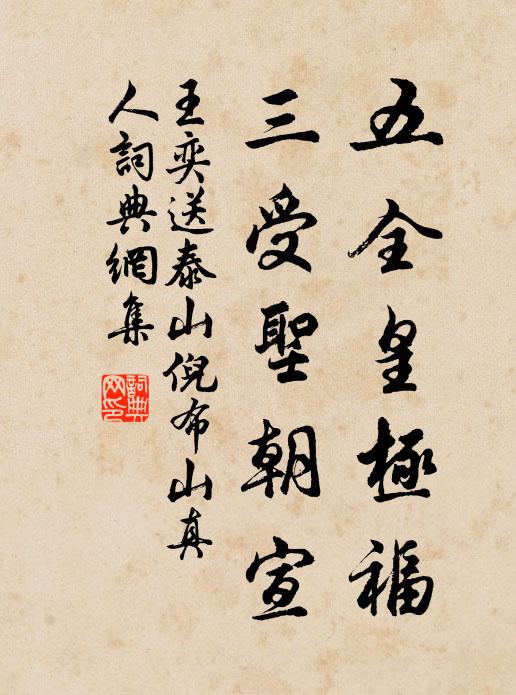 五全皇極福
三受聖朝宣
王奕送泰山倪布山真
人詞典網集
詞典网印